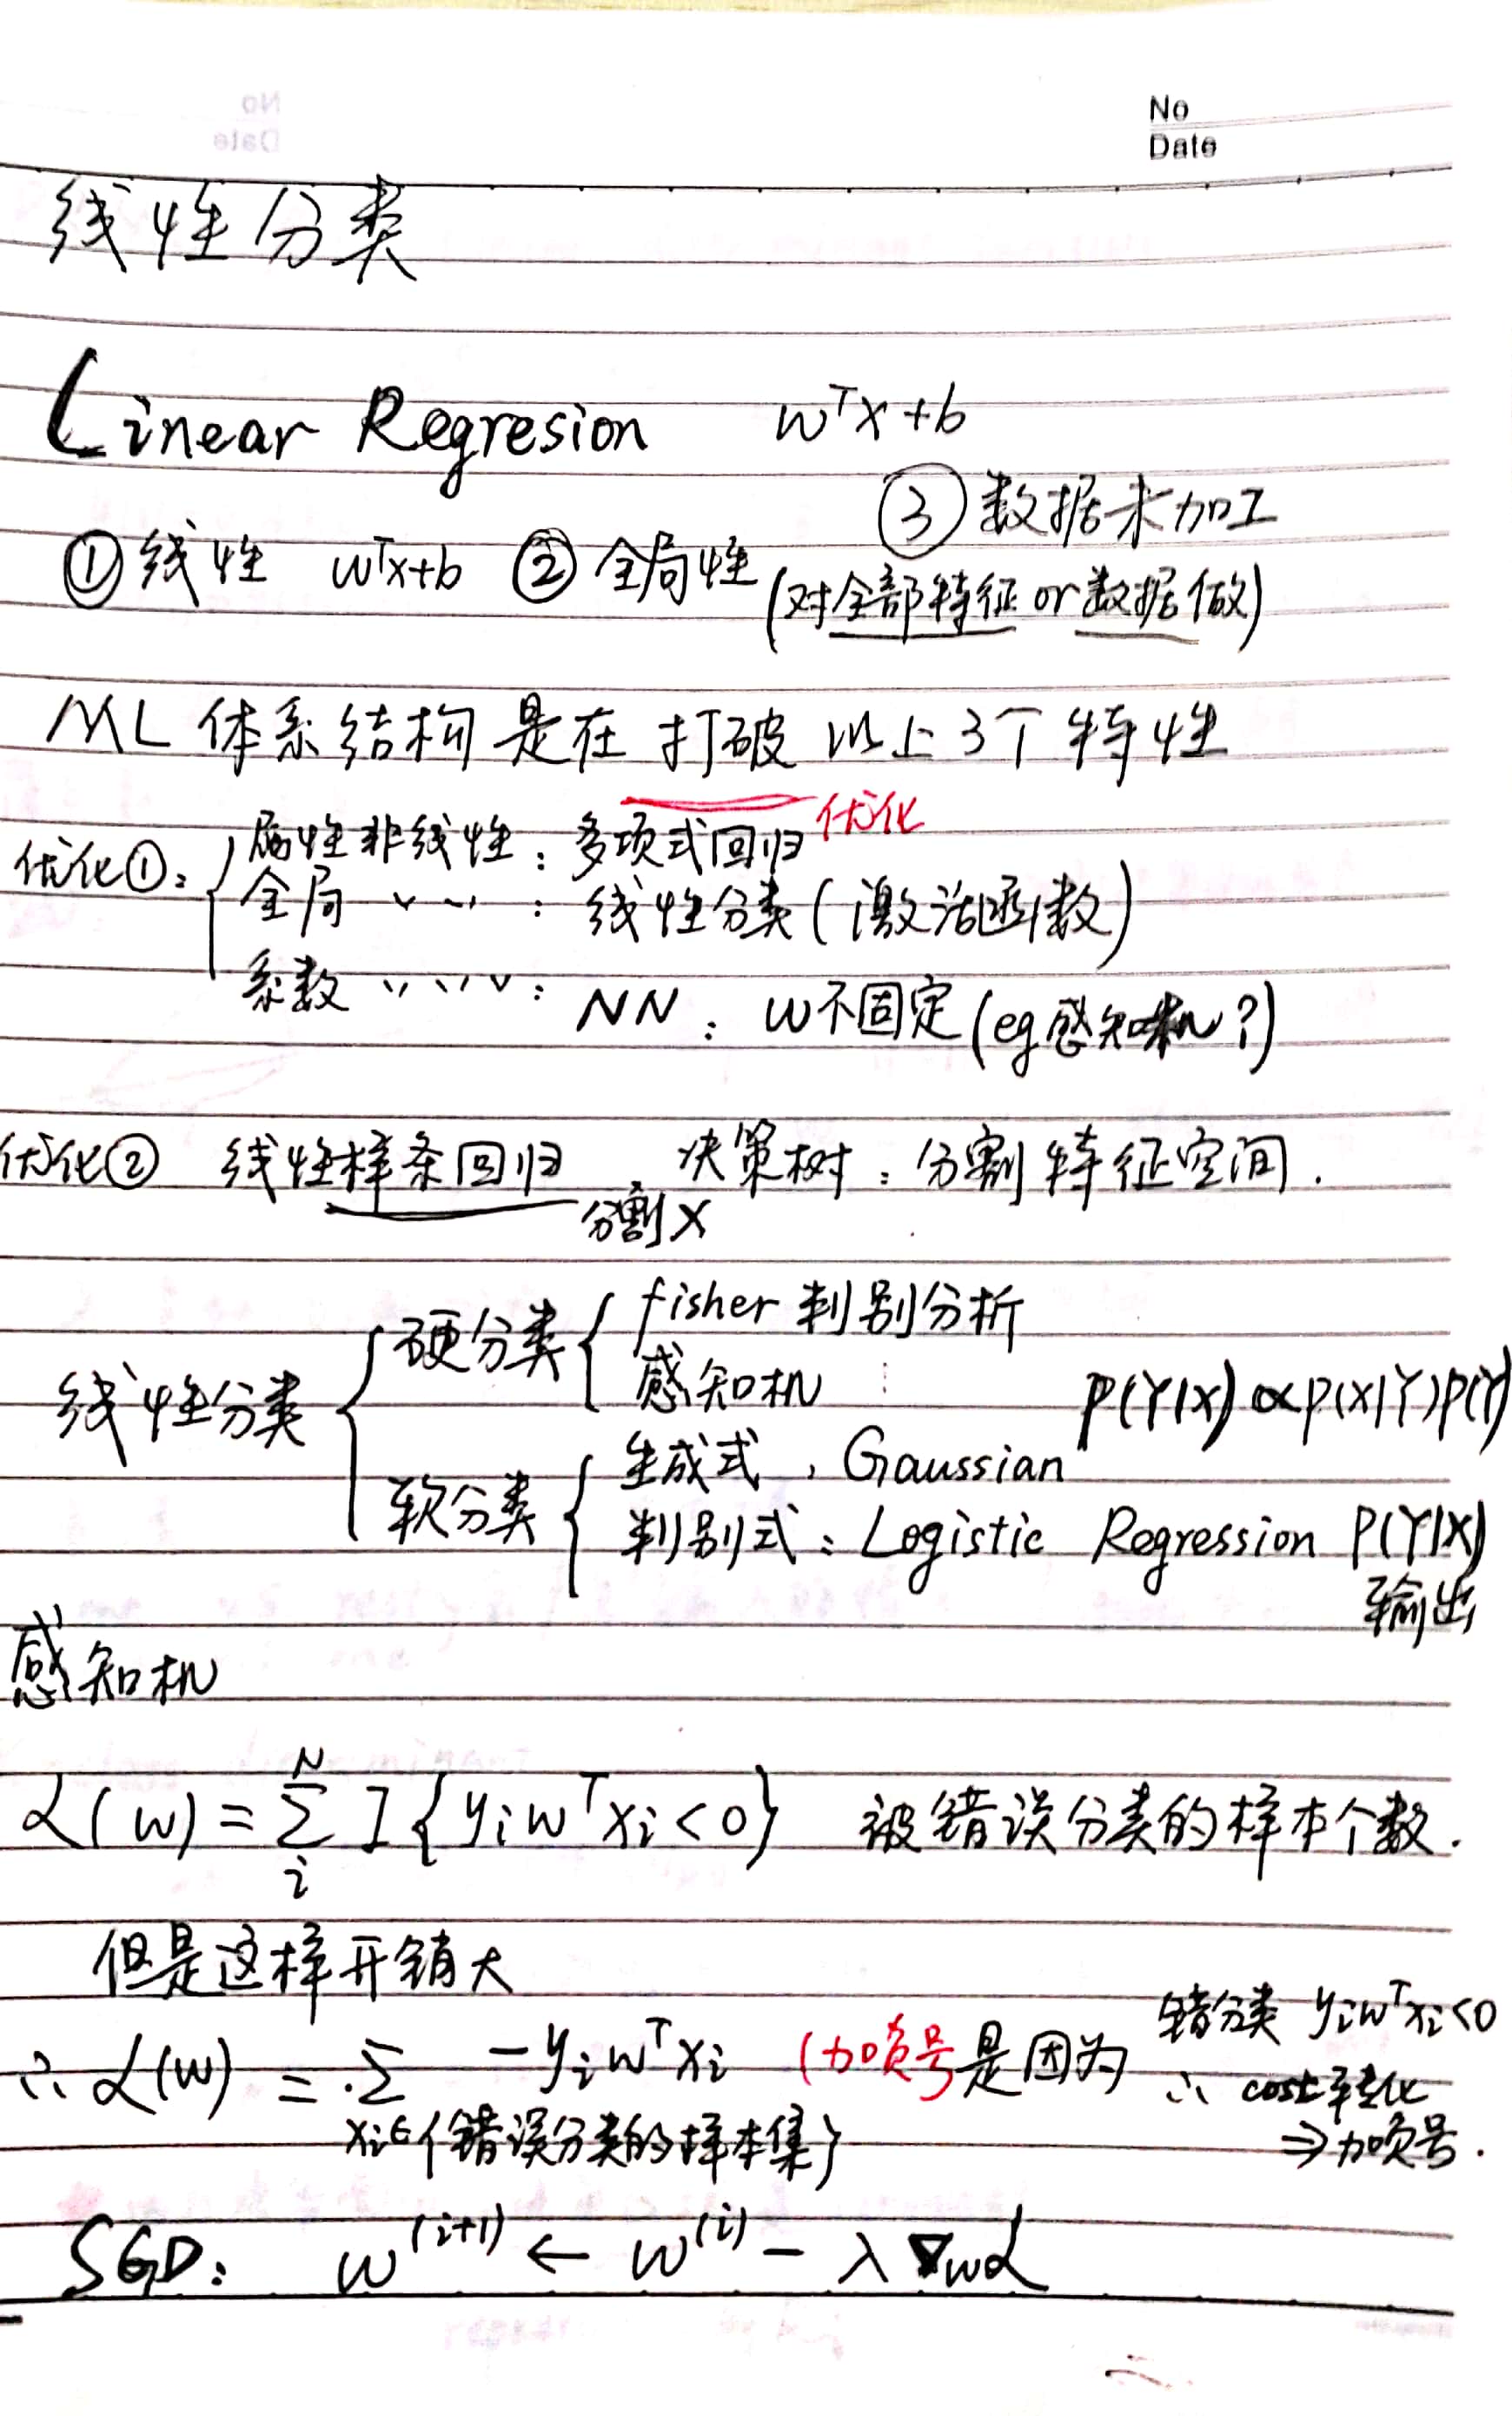 No
Date
线性分类
Linear Regresion wᵀx+b
③ 数据未加工
① 线性 wᵀx+b ② 全局性 (对全部特征 or 数据做)
ML 体系结构是在 打破 以上3个特性
优化
优化①: { 属性非线性: 多项式回归
全局 〃 〃 : 线性分类 (激活函数)
系数 〃 〃 〃 : NN: W不固定 (eg感知机?)
优化② 线性样条回归 、决策树: 分割特征空间.
分割X
线性分类 { 硬分类 { fisher 判别分析
感知机
P(Y|X) ∝ P(X|Y)P(Y)
软分类 { 生成式, Gaussian
判别式: Logistic Regression P(Y|X)
输出
感知机
L(w) = Σᵢᴺ I{yᵢwᵀxᵢ<0} 被错误分类的样本个数.
但是这样开销大
∴ L(w) = Σ -yᵢwᵀxᵢ (加负号是因为 错分类 yᵢwᵀxᵢ<0
xᵢ∈{错误分类的样本集}
∴ cost转化
⇒加负号.
SGD: w⁽ⁱ⁺¹⁾ ← w⁽ⁱ⁾ - λ∇wL